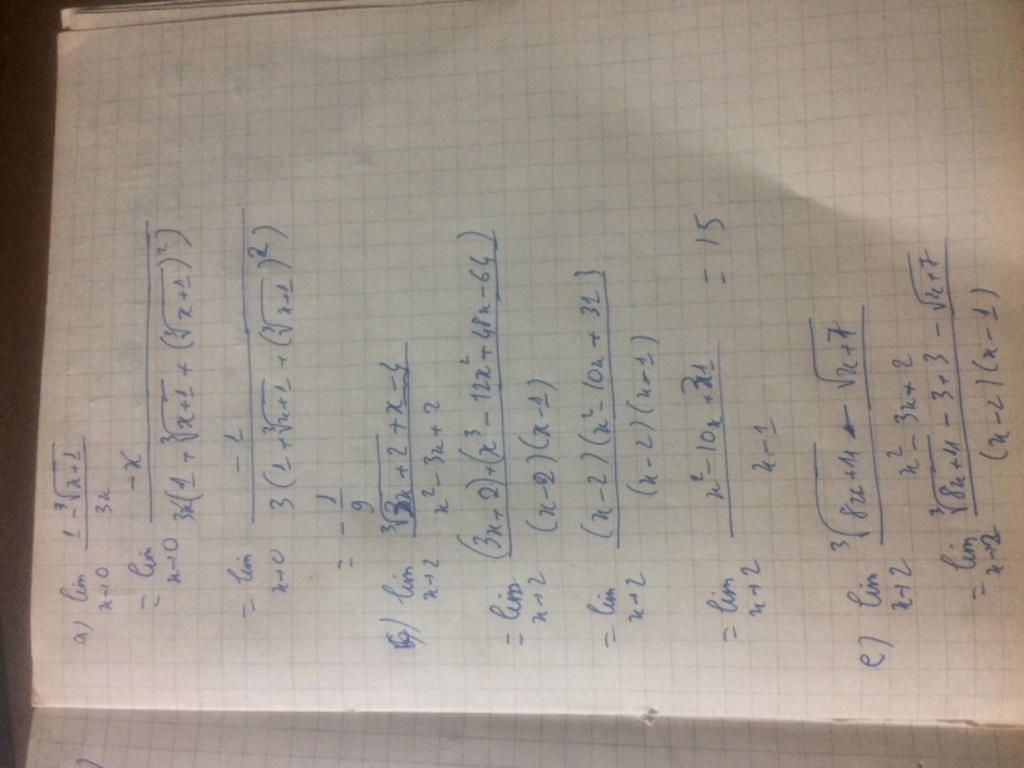 a) lim x→0 (1 - ∛(x+1)) / 3x
= lim x→0 -x / 3x(1 + ∛(x+1) + (∛(x+1))²)
= lim x→0 -1 / 3(1 + ∛(x+1) + (∛(x+1))²)
= - 1/9
b) lim x→2 (∛(3x+2) + x - 4) / (x² - 3x + 2)
= lim x→2 ((3x+2) + (x³ - 12x² + 48x - 64)) / (x-2)(x-1)
= lim x→2 (x-2)(x² - 10x + 31) / (x-2)(x-1)
= lim x→2 (x² - 10x + 31) / (x-1) = 15
c) lim x→2 (∛(8x+11) - √(x+7)) / (x² - 3x + 2)
= lim x→2 (∛(8x+11) - 3 + 3 - √(x+7)) / (x-2)(x-1)